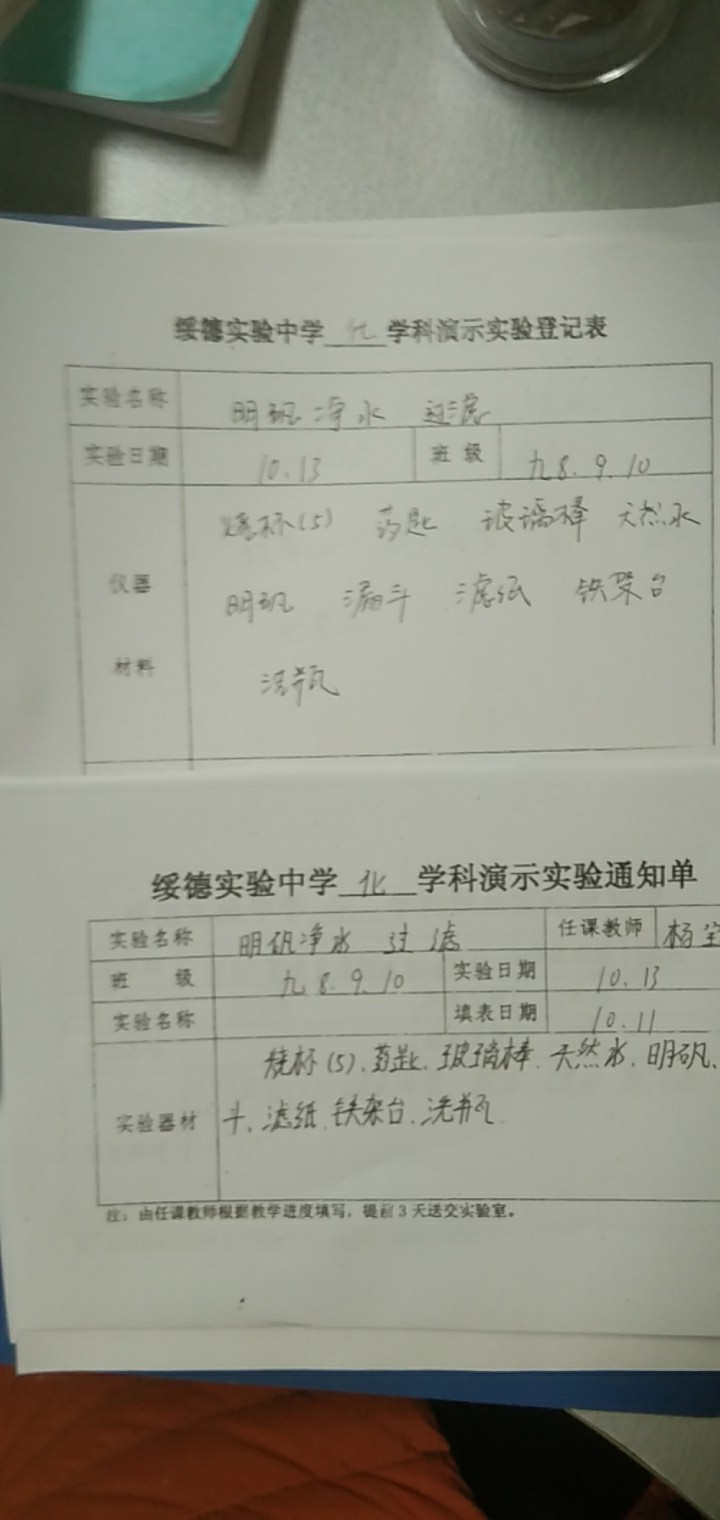 绥德实验中学 化 学科演示实验登记表
实验名称 明矾净水 过滤
实验日期 10.13 班级 九8.9.10
仪器 材料 烧杯(5) 药匙 玻璃棒 天然水
明矾 漏斗 滤纸 铁架台
洗瓶
绥德实验中学 化 学科演示实验通知单
实验名称 明矾净水 过滤 任课教师 杨
班 级 九8.9.10 实验日期 10.13
实验名称 填表日期 10.11
实验器材 烧杯(5).药匙.玻璃棒.天然水.明矾、
斗.滤纸.铁架台.洗瓶.
注：由任课教师根据教学进度填写，提前3天送交实验室。